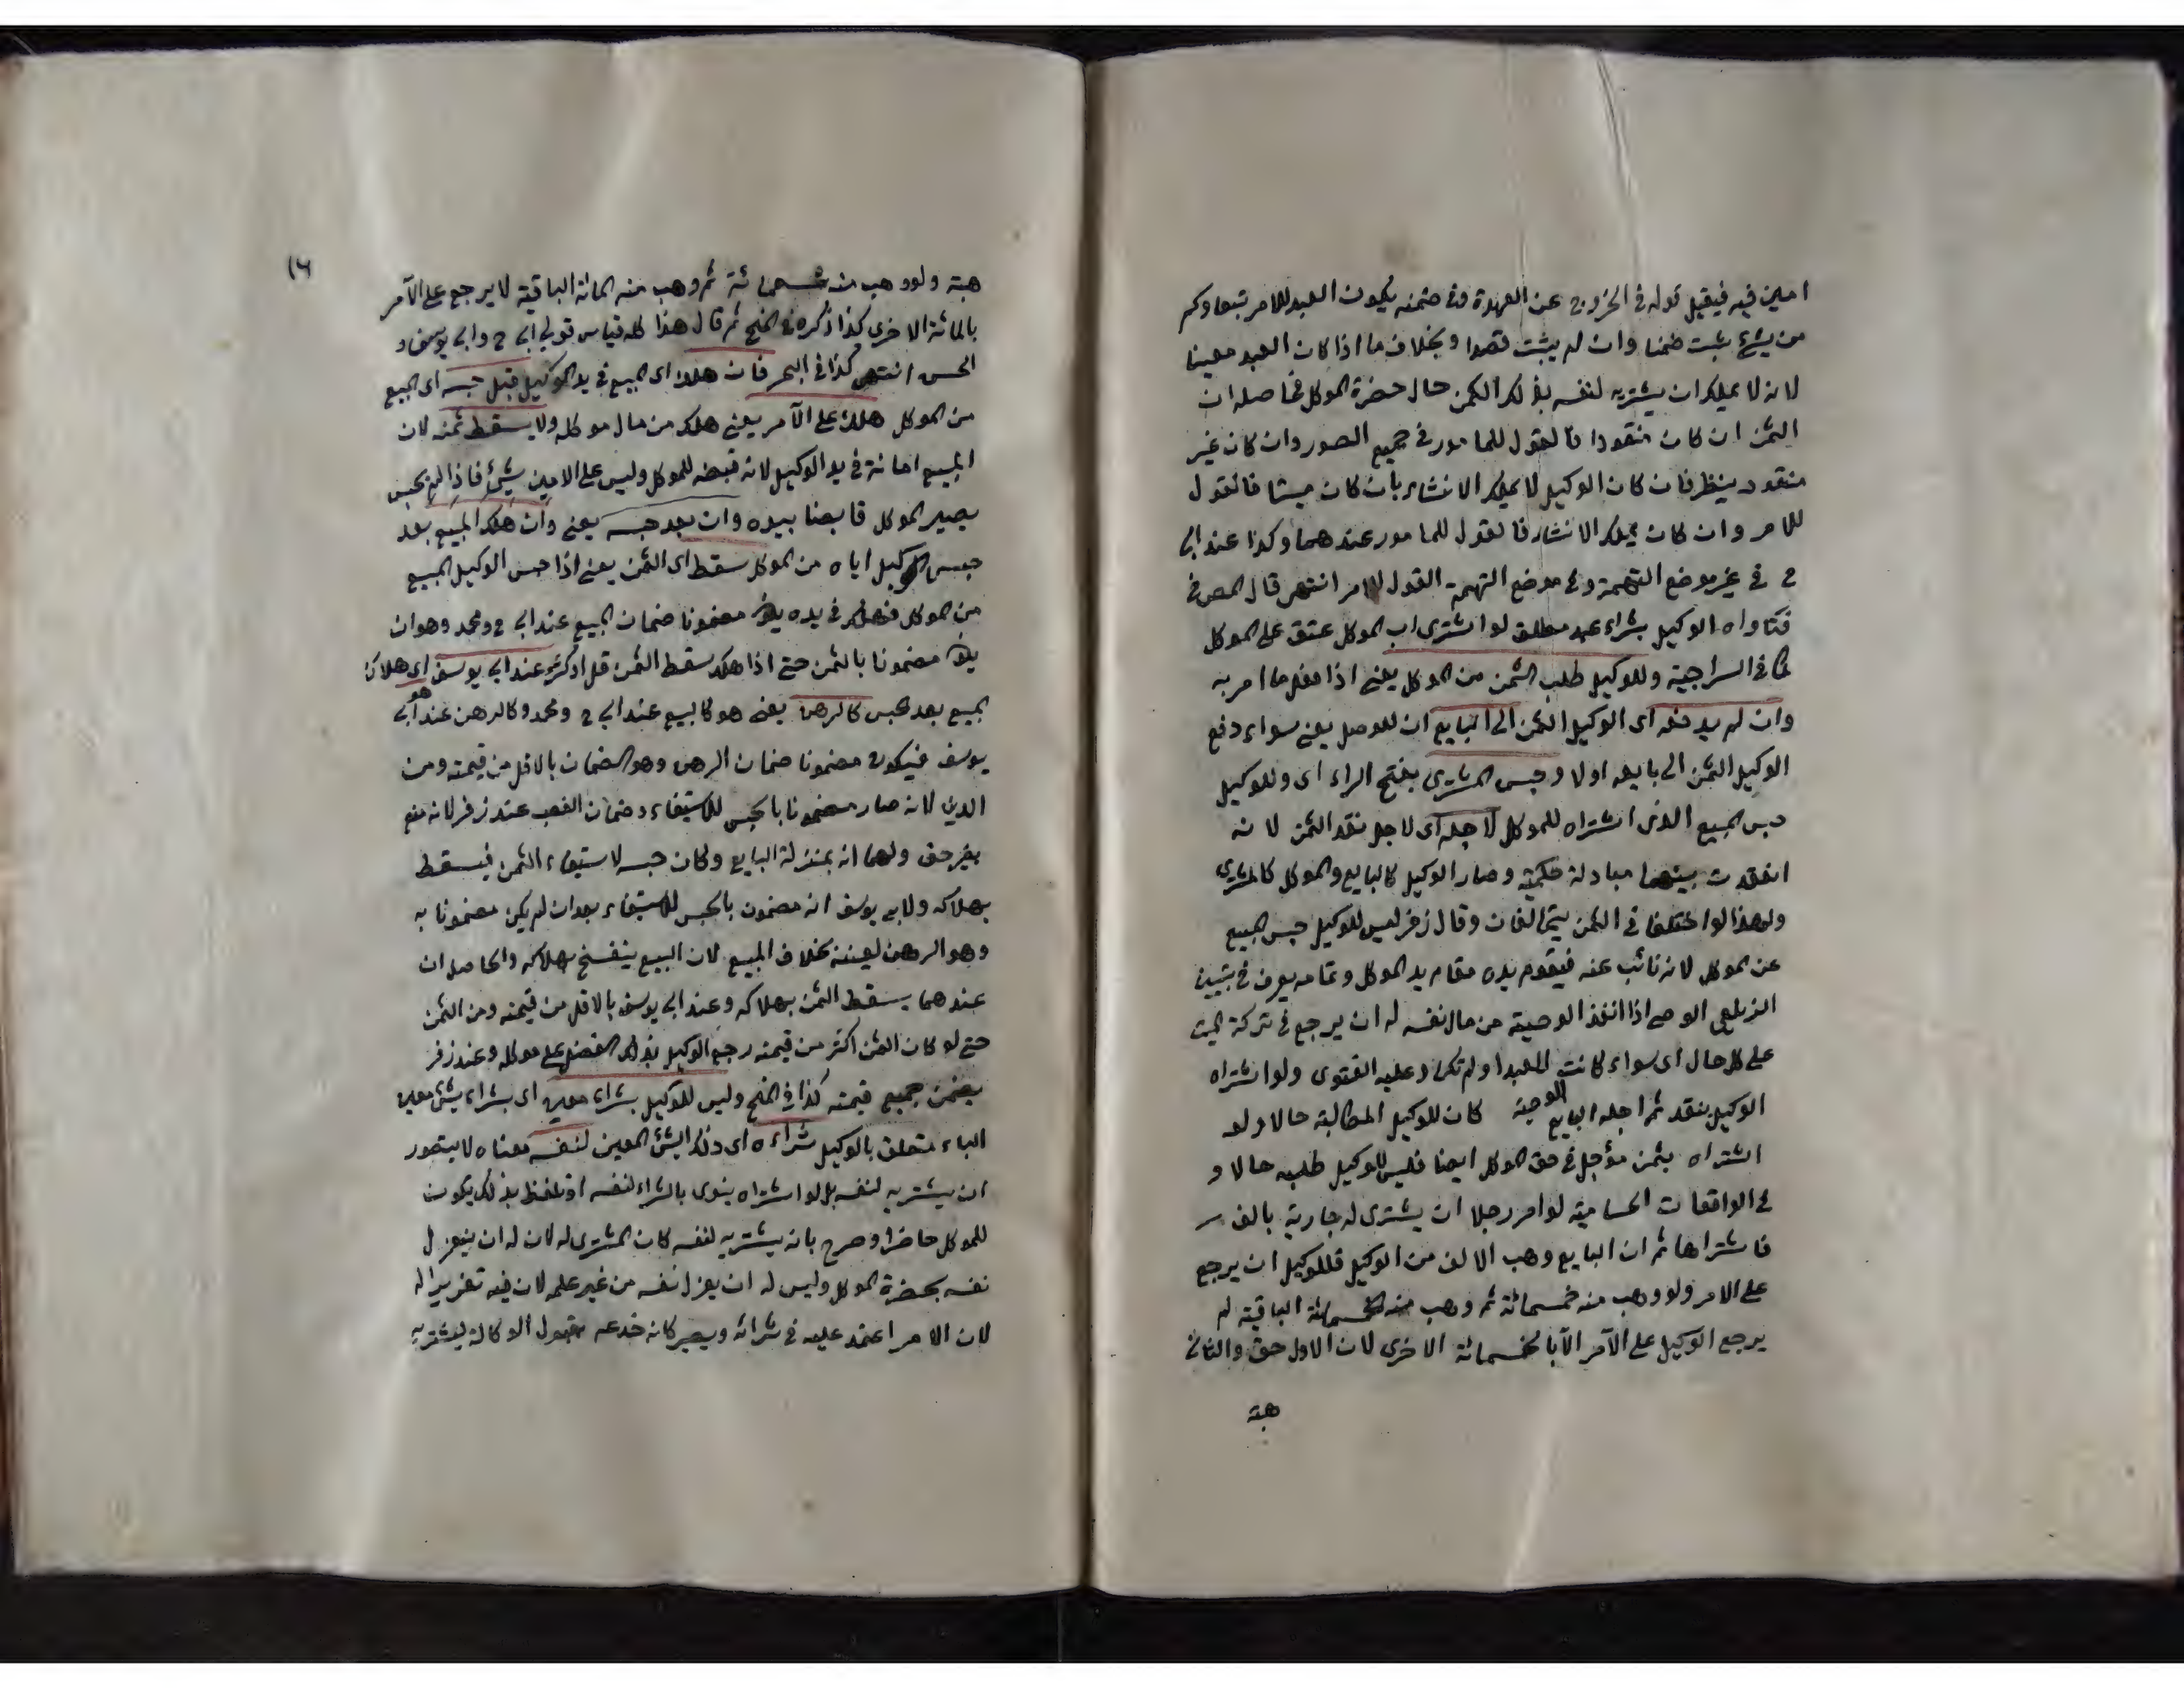 امين فيه فيقبل قوله في الخروج عن العهدة وفي ضمنه يكون العبد للامر تبعا وكم
من شئ يثبت ضمنا وان لم يثبت قصدا وبخلاف ما اذا كان العبد معينا
لانه لا يملك ان يشتريه لنفسه بذلك الثمن حال حضرة الموكل فحاصله ان
الثمن ان كان منقودا فالقول للمامور في جميع الصور وان كان غير
منقود ينظر فان كان الوكيل لا يملك الانشاء بان كان ميتا فالقول
للامر وان كان يملك الانشاء فالقول للمامور عندهما وكذا عند ابي
ح في غير موضع التهمة وفي موضع التهمة القول للامر انتهى قال المص في
فتاواه الوكيل بشراء عبد مطلق لو اشترى اب الموكل عتق على الموكل
كما في السراجية وللوكيل طلب الثمن من الموكل يعني اذا فعل ما امر به
وان لم يدفعه اى الوكيل الثمن الى البايع ان للوصل يعني سواء دفع
الوكيل الثمن الى بايعه اولا وحبس المشترى بفتح الراء اى وللوكيل
حبس المبيع الذى اشتراه للموكل لاجله اى لاجل نقد الثمن لانه
انعقدت بينهما مبادلة حكمية وصار الوكيل كالبايع والموكل كالمشترى
ولهذا لو اختلفا في الثمن يتحالفان وقال زفر ليس للوكيل حبس المبيع
عن الموكل لانه نائب عنه فيقوم يده مقام يد الموكل وتمامه يعرف في تبيين
الزيلعى الوصي اذا انفذ الوصية من مال نفسه له ان يرجع في تركة الميت
على كل حال اى سواء كانت الوصية للعبد او لم تكن وعليه الفتوى ولو اشتراه
الوكيل بنقد ثم اجله البايع كان للوكيل المطالبة حالا ولو
اشتراه بثمن مؤجل في حق الموكل ايضا فليس للوكيل طلبه حالا و
في الواقعات الحسامية لو امر رجلا ان يشترى له جارية بالف
فاشتراها ثم ان البايع وهب الالف من الوكيل فللوكيل ان يرجع
على الامر ولو وهب منه خمسمائة ثم وهب منه الخمسمائة الباقية لم
يرجع الوكيل على الآمر الا بالخمسمائة الاخرى لان الاول حق والثاني
هبة
١٦
هبة ولو وهب منه تسعمائة ثم وهب منه المائة الباقية لا يرجع على الآمر
بالمائة الاخرى كذا ذكره في المنح ثم قال هذا كله قياس قولي ابي ح وابي يوسف و
الحسن انتهى كذا في البحر فان هلك اى المبيع في يد الوكيل قبل حبسه اى المبيع
من الموكل هلك على الآمر يعني هلك من مال موكله ولا يسقط ثمنه لان
المبيع امانة في يد الوكيل لانه قبضه للموكل وليس على الامين شئ فاذا لم يحبس
يصير الموكل قابضا بيده وان بعد حبسه يعني وان هلك المبيع بعد
حبس الوكيل اياه من الموكل سقط اى الثمن يعني اذا حبس الوكيل المبيع
من الموكل فهلك في يده مضمونا ضمان المبيع عند ابي ح ومحمد وهو ان
مضمونا بالثمن حتى اذا هلك سقط الثمن قل او كثر وعند ابي يوسف اى هلاك
المبيع بعد الحبس هو كالرهن يعني هو كالبيع عند ابي ح ومحمد وكالرهن عند ابي
يوسف فيكون مضمونا ضمان الرهن وهو الضمان بالاقل من قيمته ومن
الدين لانه صار مضمونا بالحبس للاستيفاء وضمان الغصب عند زفر لانه منع
بغير حق ولهما انه بمنزلة البايع وكان حبسه لاستيفاء الثمن فيسقط
بهلاكه ولابي يوسف انه مضمون بالحبس للاستيفاء بعد ان لم يكن مضمونا به
وهو الرهن بعينه بخلاف المبيع لان البيع ينفسخ بهلاكه والحاصل ان
عندهما يسقط الثمن بهلاكه وعند ابي يوسف بالاقل من قيمته ومن الثمن
حتى لو كان الثمن اكثر من قيمته رجع الوكيل بذلك الفضل على موكله وعند زفر
يضمن جميع قيمته كذا في المنح وليس للوكيل بشراء معين اى بشراء شئ معين
الباء متعلق بالوكيل شراءه اى ذلك الشئ المعين لنفسه معناه لا يتصور
ان يشتريه لنفسه بل لو اشتراه ينوى بالشراء لنفسه او تلفظ بذلك يكون
للموكل حاضرا وصرح بانه يشتريه لنفسه كان المشترى له لان له ان ينعزل
نفسه بحضرة الموكل وليس له ان يعزل نفسه من غير علمه لان فيه تغريرا له
لان الامر اعتمد عليه في شرائه ويصير كانه خدعه بقبول الوكالة ليشتريه